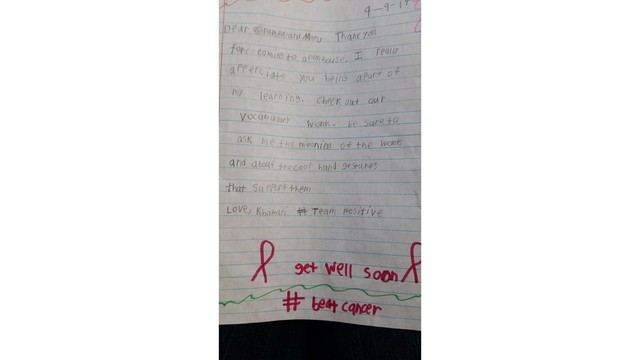 9-9-19
Dear Grandma and Mom, Thank you
for coming to open house. I really
appericiate you being apart of
my learning. Check out our
vocabulary work. be sure to
ask me the meaning of the words
and about the cool hand gestures
that support them
Love, # Team Positive
get well soon
# beat cancer